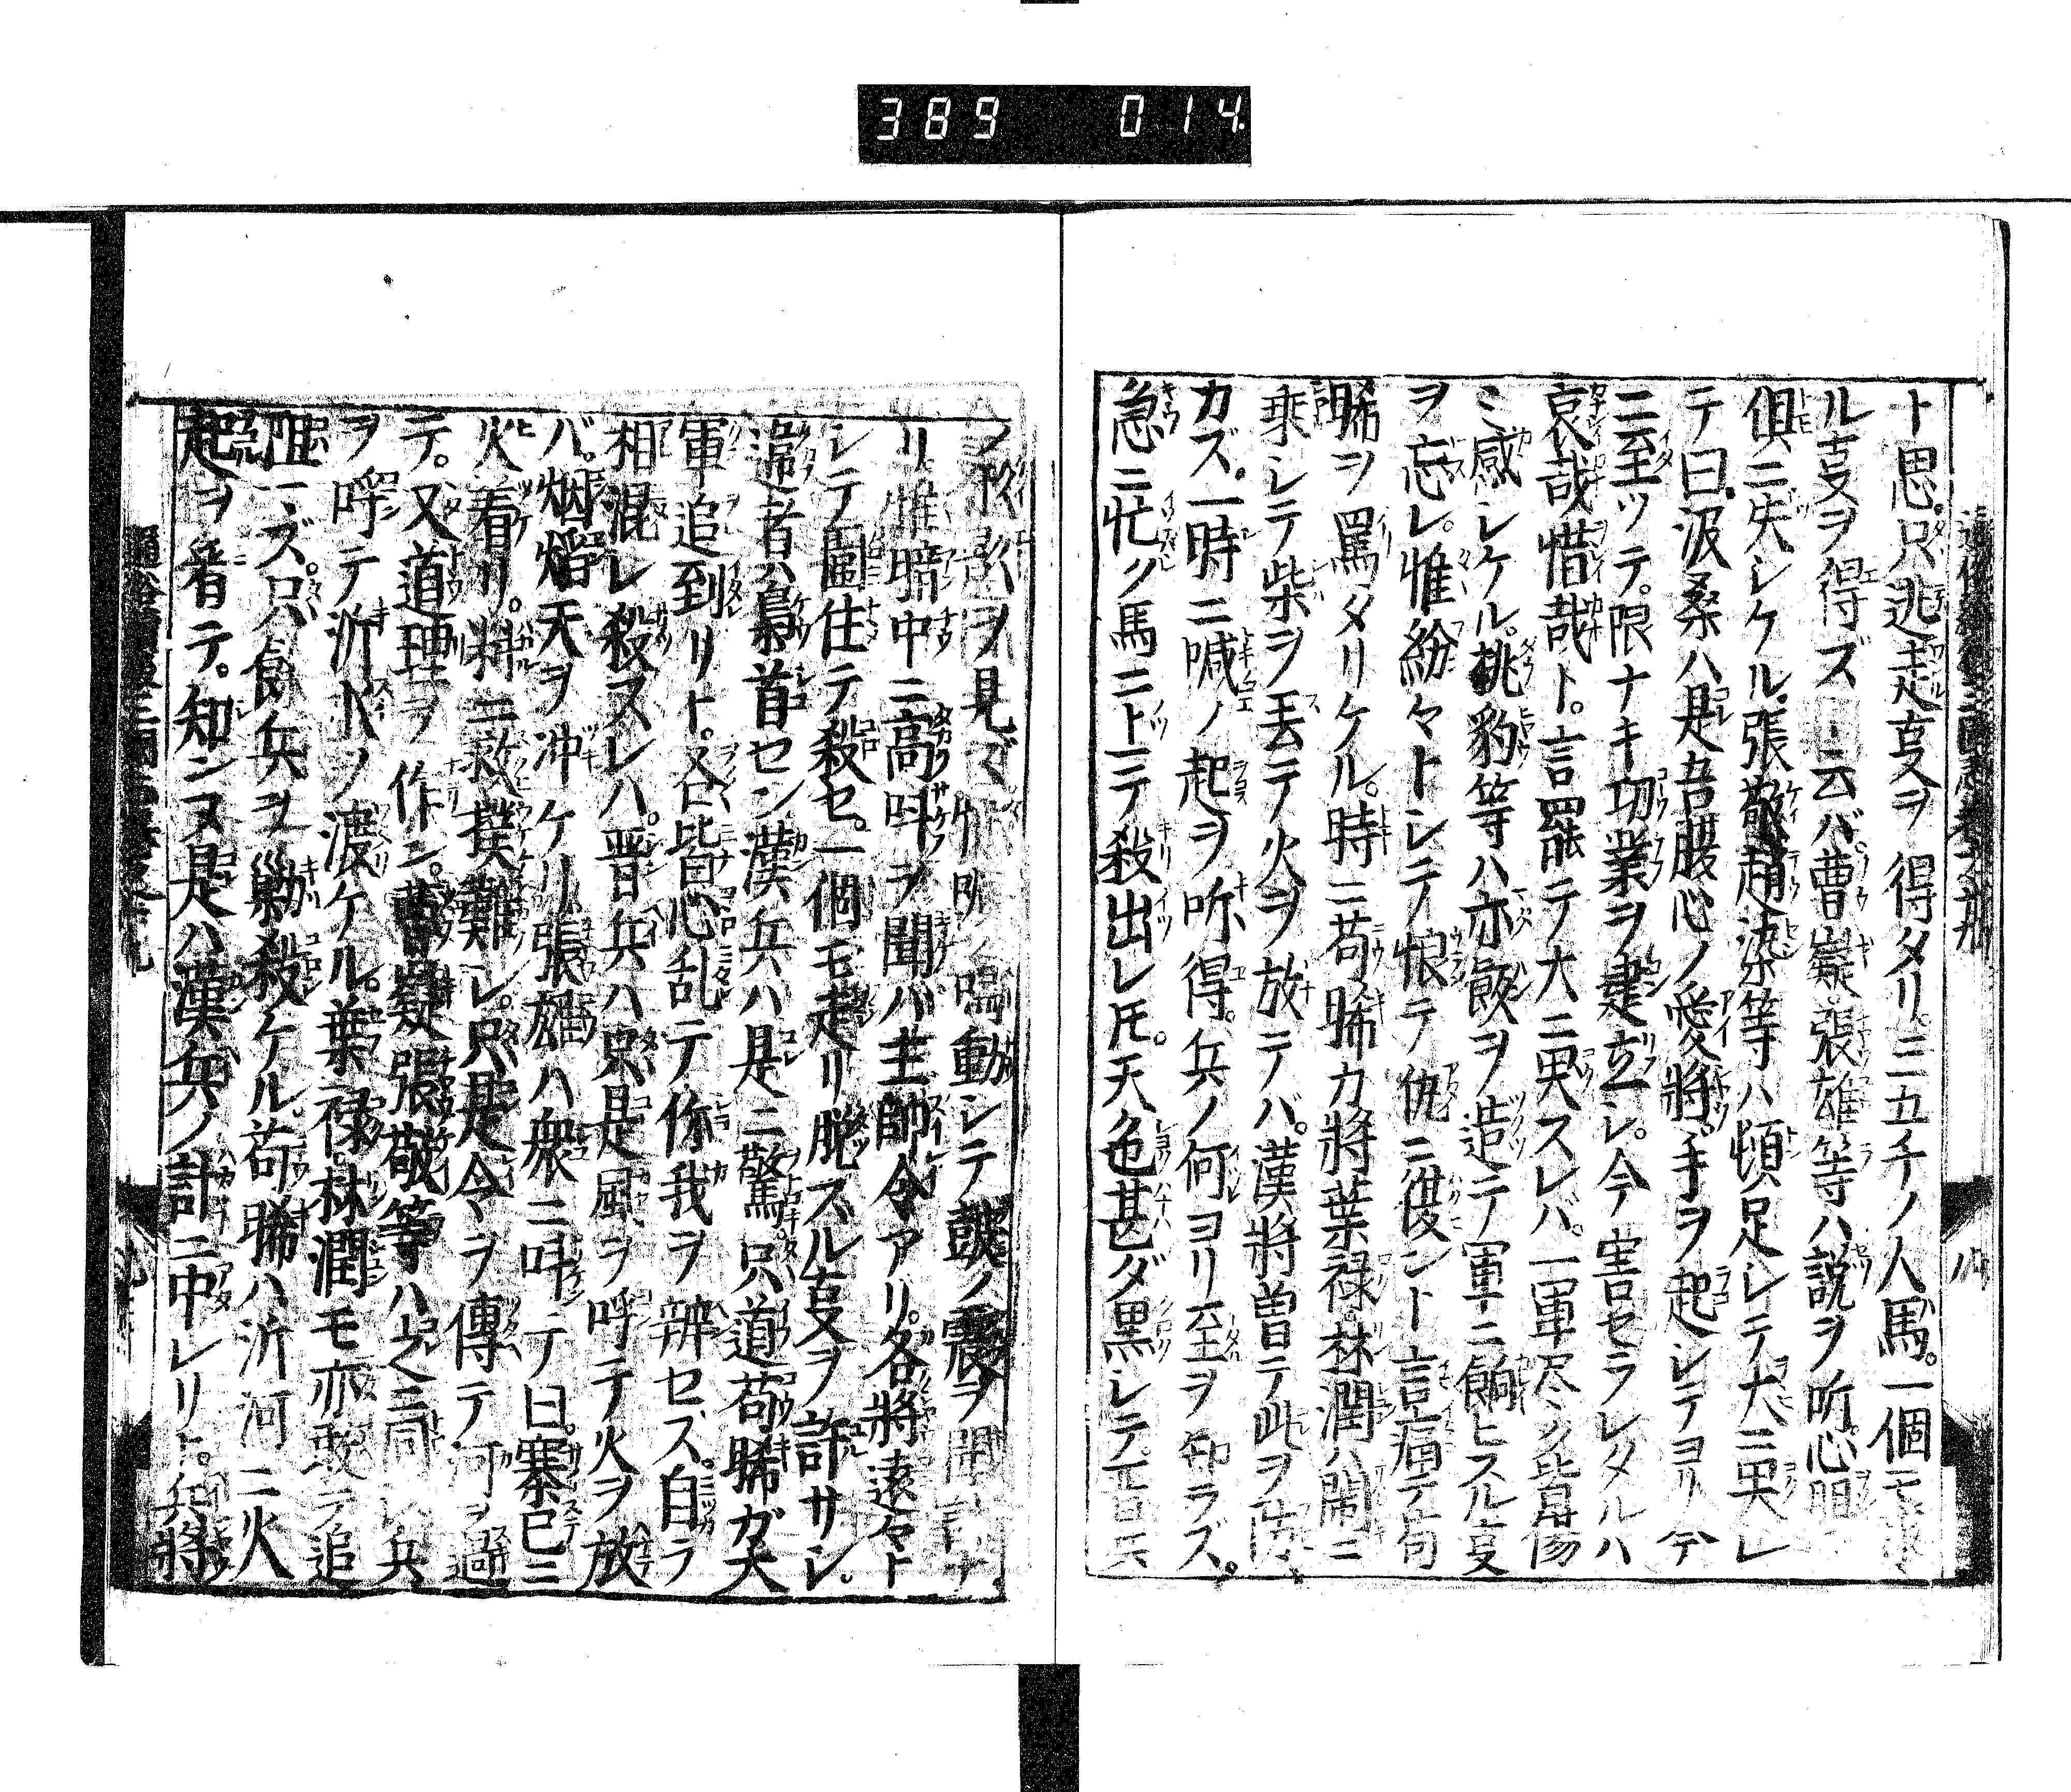 389 014
ト思。只逃走叓ヲ得タリ。三五千ノ人馬。一個モ
ル叓ヲ得ズ云バ曹嶷張雄等ハ説ヲ听。心
俱ニ失シケル。張敬趙染等ハ頓足シテ大ニ哭シ
テ曰。汲桑ハ是吾腹心ノ愛將。手ヲ起シテヨリ今
ニ至ツテ。限ナキ功業ヲ建立シ。今害セラレタルハ
哀哉惜哉ト。言罷テ大ニ哭スレバ。一軍尽ク皆傷
ミ感シケル。桃豹等ハ亦飯ヲ造テ軍ニ餉ヒスル叓
ヲ忘レ。惟紛々トシテ恨テ仇ニ復ント言痛テ苟
晞ヲ罵タリケル。時ニ苟晞カ將葉禄林潤ハ閙ニ
乗シテ柴ヲ丟テ火ヲ放テバ。漢將曽テ此ヲ防
カズ。一時ニ喊ノ起ヲ听得。兵ノ何ヨリ至ヲ知ラズ。
急ニ忙ク馬ニ上テ殺出レ𪜈。天色甚ダ黒シテ
ヲ見デ
動シテ皷ノ震ヲ
リ。惟暗中ニ高叫ヲ聞バ主帥令アリ。各將遠々ト
シテ圍住テ殺セ。一個モ走リ脱スル叓ヲ許サシ。
違者ハ梟首セン漢兵ハ是ニ驚。只道苟晞ガ大
軍追到リト。各皆心乱テ你我ヲ辨セズ。自ラ
相混レ殺スレハ。晋兵ハ只是風ヲ呼テ火ヲ放
バ。烟熖天ヲ冲ケリ張雄ハ衆ニ叫テ曰。寨已ニ
火着リ。料ニ救撲難シ。只是令ヲ傳テ河ヲ過
テ。又道理ヲ作ン。曹嶷張敬等ハ之ニ同シ兵
ヲ呼テ沂水ノ渡ケル。葉禄林潤モ亦敢テ追
阻ズ。只餘兵ヲ勦殺ケル。苟晞ハ沂河ニ火
起ヲ看テ。知ンヌ是ハ漢兵ノ計ニ中レリト。兵將